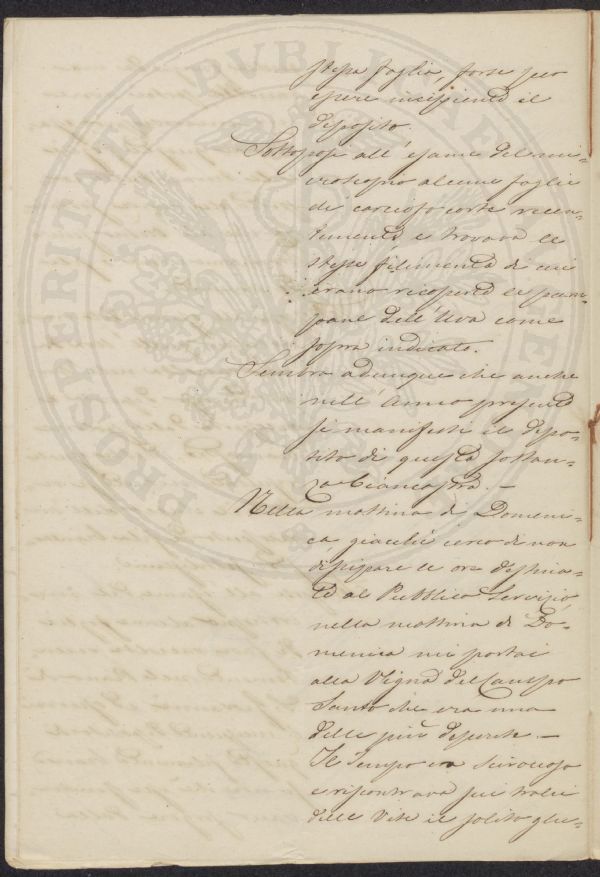 stessa foglia, forse per
essere incipiente il
deposito.
Sottoposi all'esame del mi-
croscopio alcune foglie
di carciofo corte recen-
temente, e trovava le
stesse filimenta di cui
erano ricoperte le pam-
pane dell'Uva come
sopra indicato.
Sembra adunque che anche
nell'Anno presente
si manifesti il depo-
sito di questa sostan-
za biancastra. -
Nella mattina di Domeni-
ca giacchè cerco di non
dissipare le ore destina-
te al Pubblico Servizio,
nella mattina di Do-
menica mi portai
alla Vigna del Campo
Santo che era una
delle più deperite. -
Il tempo era sciroccoso
e riscontrava sui tralci
delle Vite il solito glu-
PROSPERITATI PVBLICAE